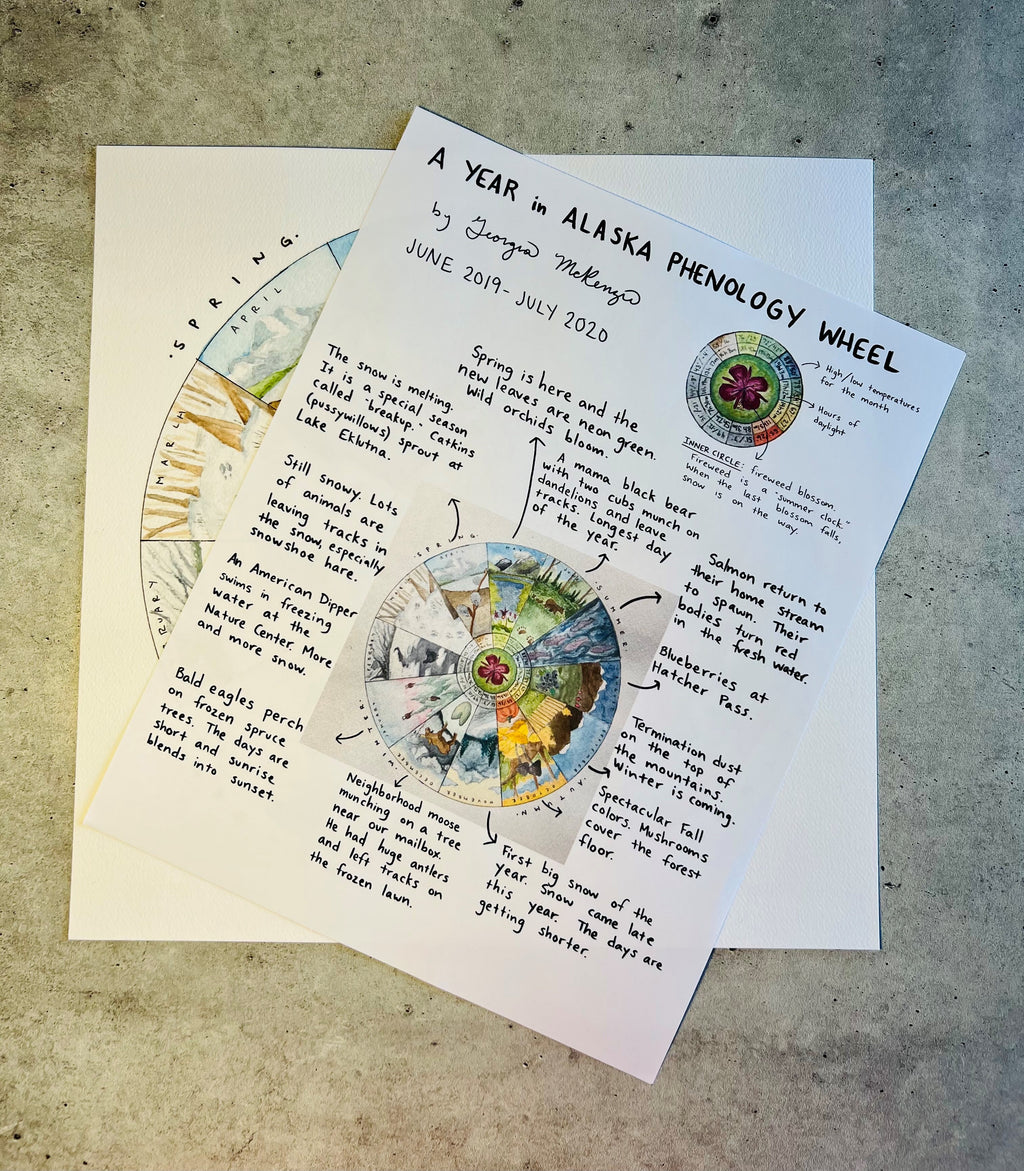 A YEAR in ALASKA PHENOLOGY WHEEL
by Georgia McKenzie
JUNE 2019 - JULY 2020
High/low temperatures
for the month
Hours of
daylight
INNER CIRCLE: fireweed blossom.
Fireweed is a "summer clock."
When the last blossom falls,
snow is on the way.
The snow is melting.
It is a special season
called "breakup". Catkins
(pussywillows) sprout at
Lake Eklutna.
Spring is here and the
new leaves are neon green.
Wild orchids bloom.
A mama black bear
with two cubs munch on
dandelions and leave
tracks. Longest day
of the year.
Still snowy. Lots
of animals are
leaving tracks in
the snow, especially
snowshoe hare.
Salmon return to
their home stream
to spawn. Their
bodies turn red
in the fresh water.
An American Dipper
swims in freezing
water at the
Nature Center. More
and more snow.
Blueberries at
Hatcher Pass.
Bald eagles perch
on frozen spruce
trees. The days are
short and sunrise
blends into sunset.
Termination dust
on the top of
the mountains.
Winter is coming.
Spectacular Fall
colors. Mushrooms
cover the forest
floor.
Neighborhood moose
munching on a tree
near our mailbox.
He had huge antlers
and left tracks on
the frozen lawn.
First big snow of the
year. Snow came late
this year. The days are
getting shorter.
·SPRING·
·SUMMER·
·AUTUMN·
·SPRING·
APRIL
MARCH